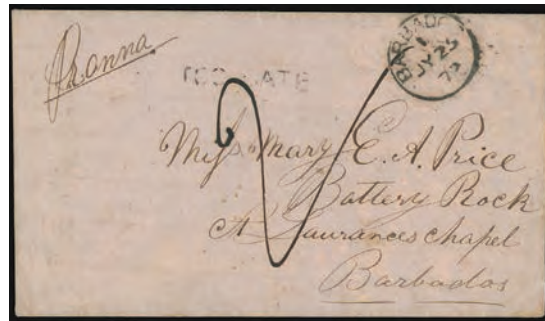 TOO LATE
BARBADOS
1
JY 25
Miss Mary E. A. Price
Battery Rock
St Laurances chapel
Barbados